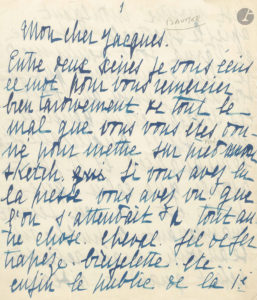 1
BAUMER
Mon cher Jacques.
Entre deux scènes je vous écris
ce mot pour vous remercier
bien tardivement de tout le
mal que vous vous êtes don-
né pour mettre sur pied mon
sketch. Si vous avez lu
la presse vous avez vu que
l'on s'attendait à tout au-
tre chose. cheval. fil de fer
trapèze. bicyclette. etc...
enfin le public de la 1e